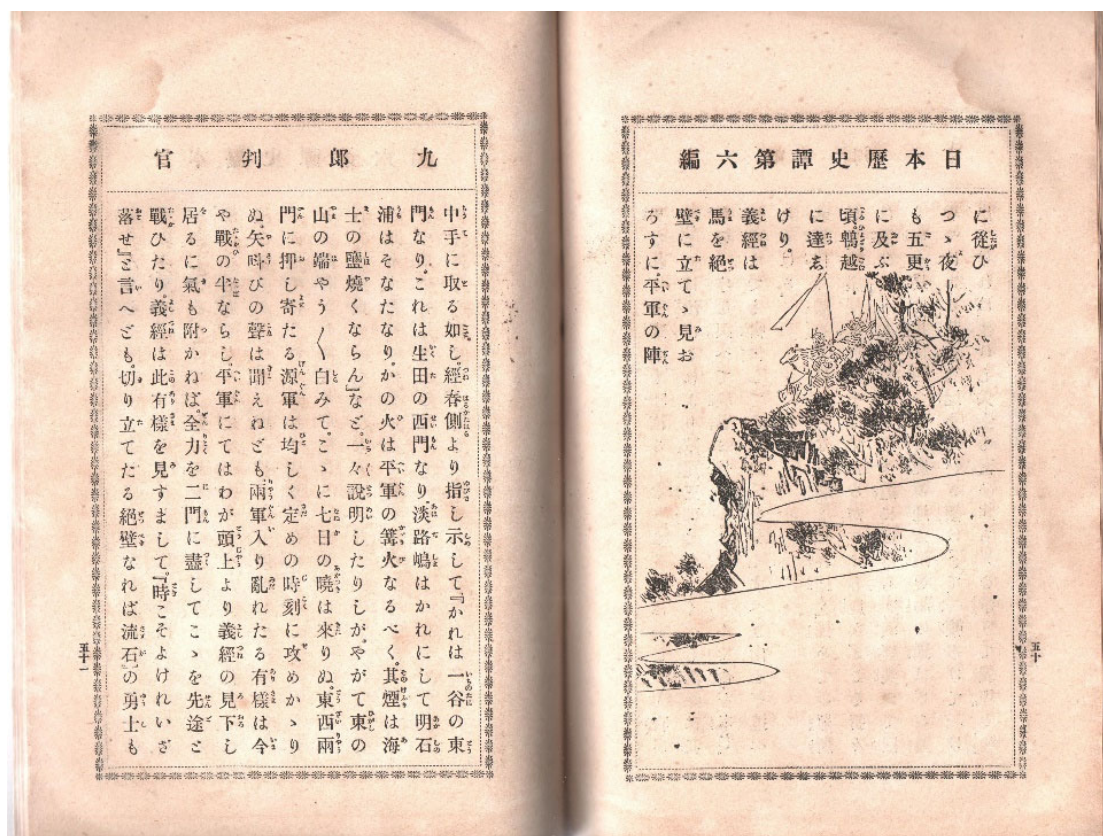 日本歷史譚第六編
に從ひ
つゝ夜
も五更
に及ぶ
頃、鵯越
に達し
けり。
義經は
馬を絕
壁に立てゝ見お
ろすに、平軍の陣
五十
九郎判官
中手に取る如し。經春側より指し示して『かれは一谷の東
門なり。これは生田の西門なり。淡路嶋はかれにして明石
浦はそなたなり。かの火は平軍の篝火なるべく、其煙は海
士の鹽燒くならん』など、一々說明したりしが、やがて東の
山の端やう〳〵白みて、こゝに七日の曉は來りぬ。東西兩
門に押し寄たる源軍は均しく定めの時刻に攻めかゝり
ぬ。矢叫びの聲は聞えねども、兩軍入り亂れたる有樣は今
や戰の半ならし。平軍にてはわが頭上より義經の見下し
居るに氣も附かねば、全力を二門に盡してこゝを先途と
戰ひたり。義經は此有樣を見すまして、『時こそよけれいざ
落せ』と言へども、切り立てたる絕壁なれば流石の勇士も
五十一